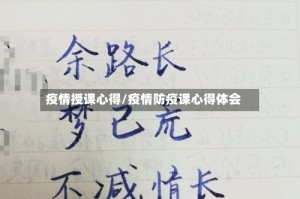 余路长
疫情授课心得/疫情防疫课心得体会
梦已荒
不减情长